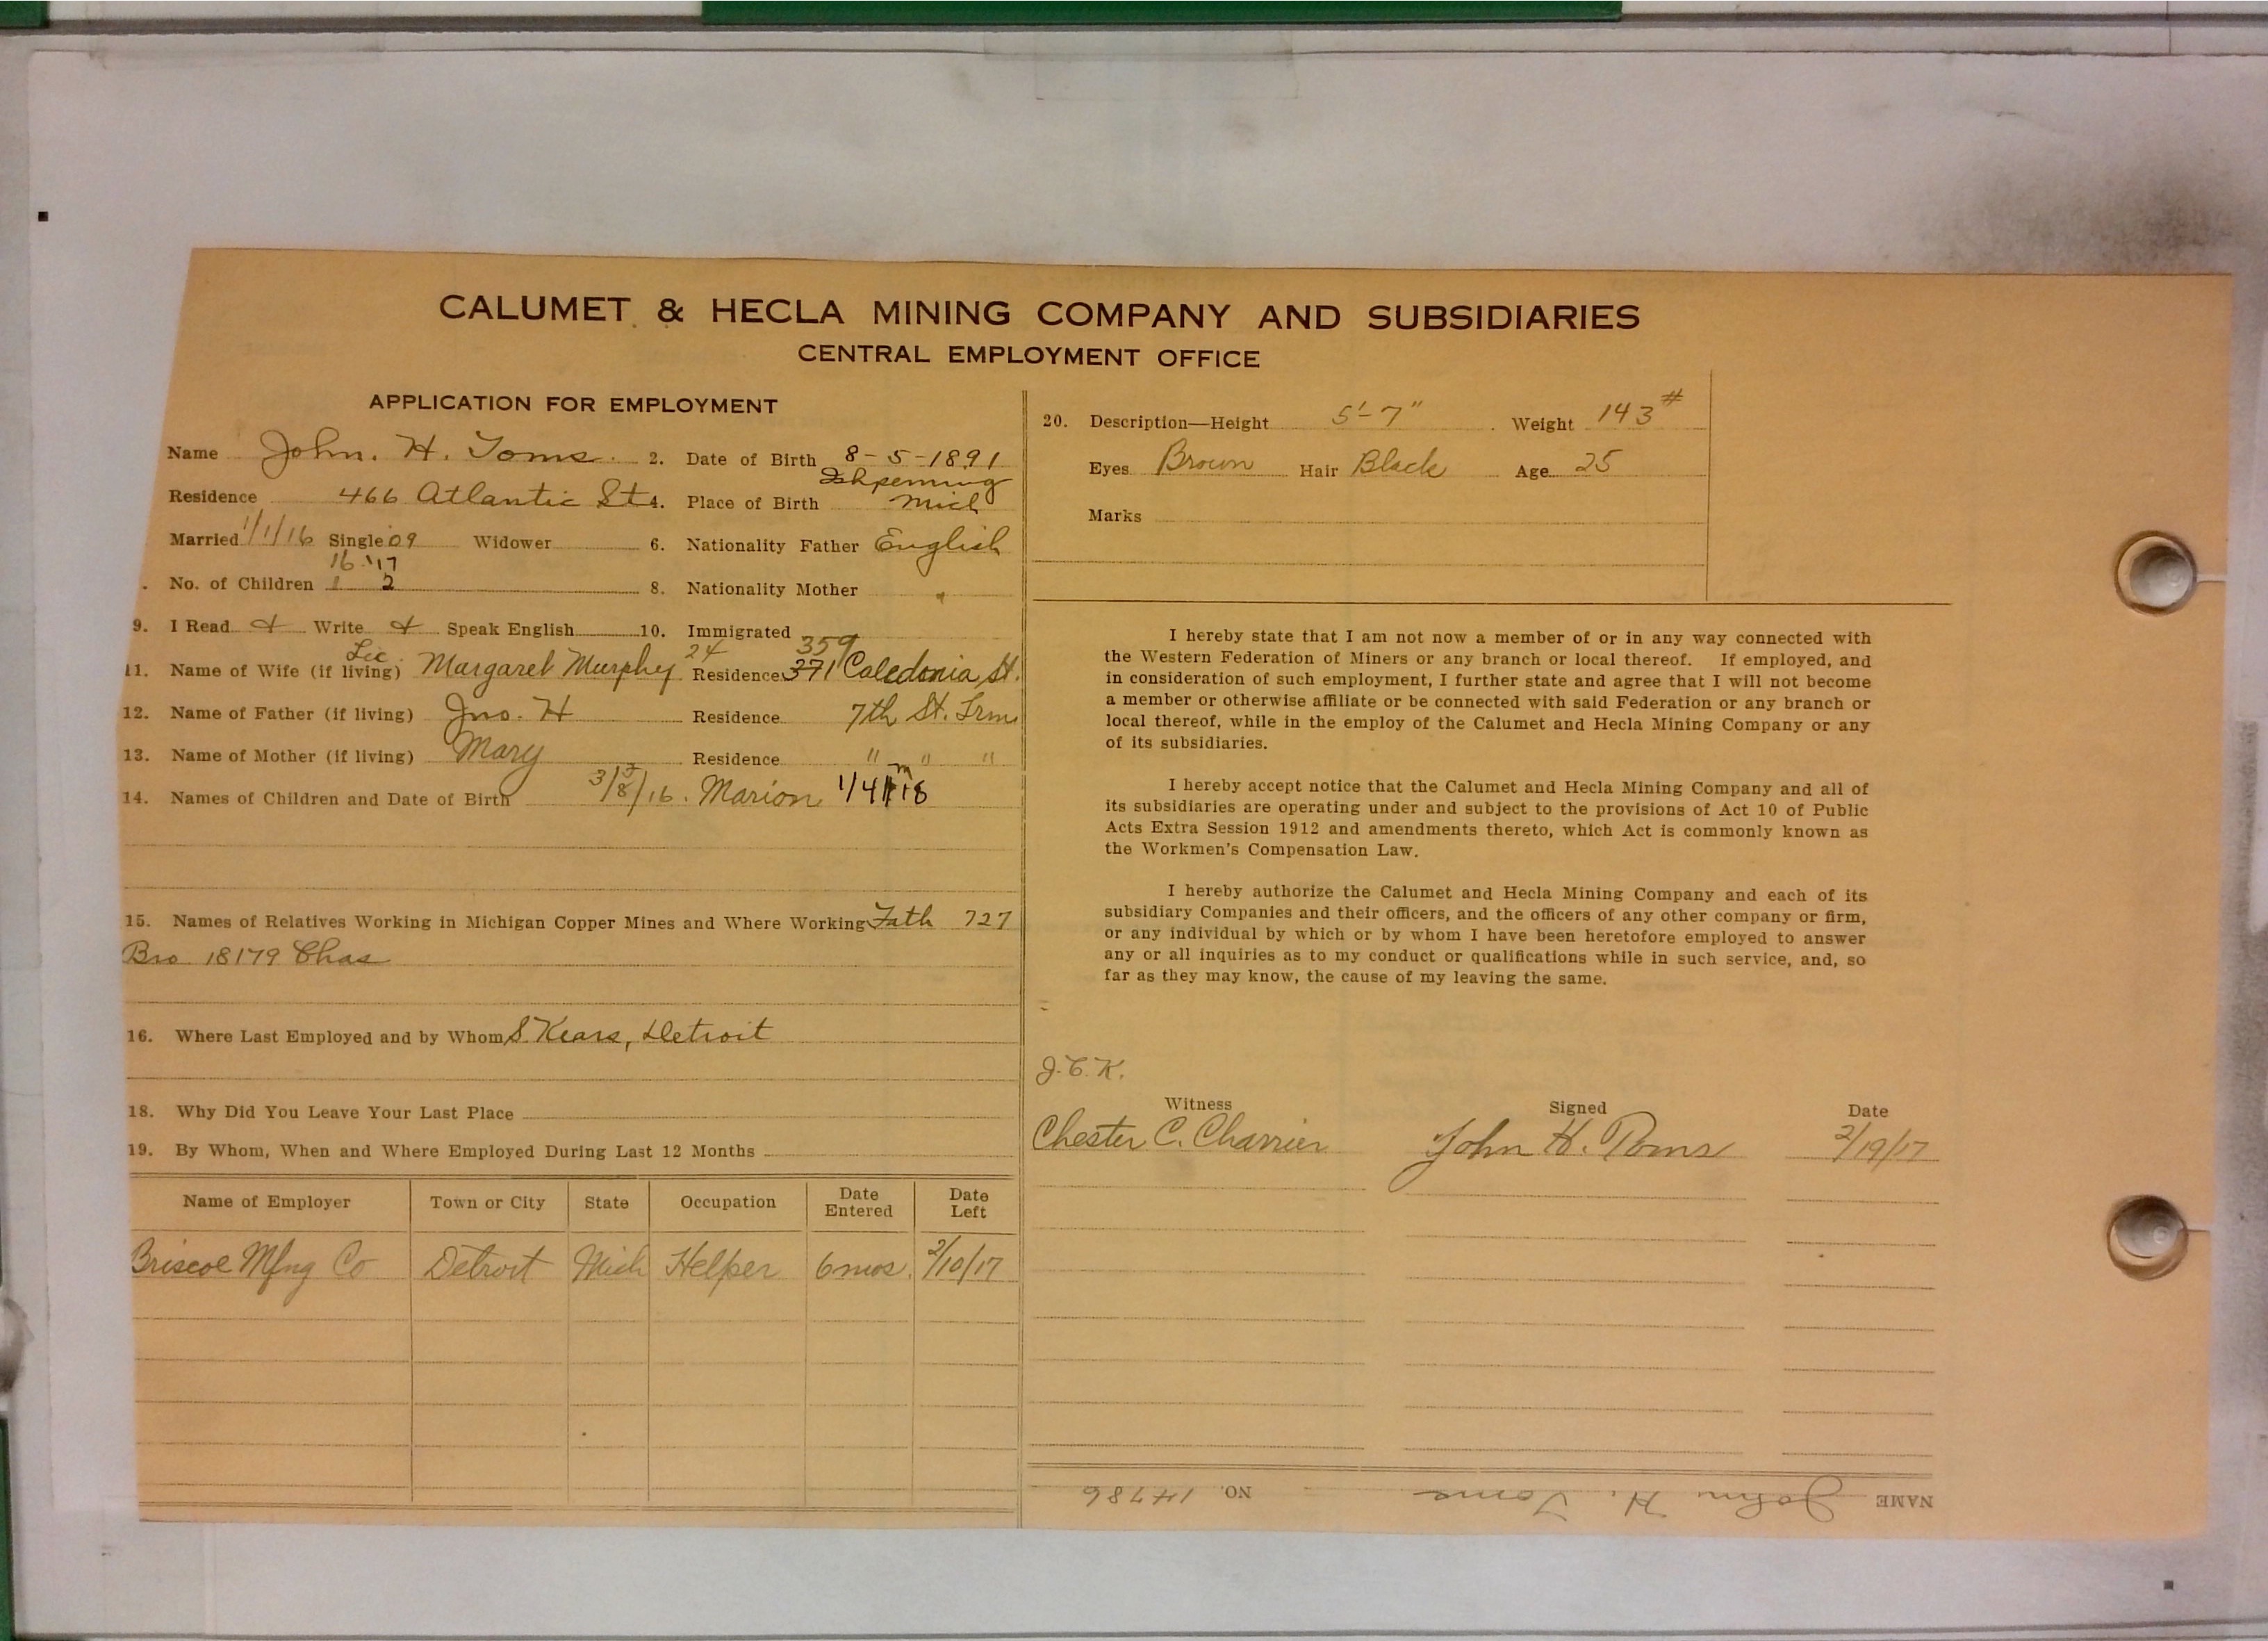 CALUMET & HECLA MINING COMPANY AND SUBSIDIARIES
CENTRAL EMPLOYMENT OFFICE
APPLICATION FOR EMPLOYMENT
Name John. H. Toms 2. Date of Birth 8-5-1891
Residence 466 Atlantic St 4. Place of Birth Ishpeming Mich
Married 1/1/16 Single 09 Widower 6. Nationality Father English
16 '17
No. of Children 1 2 8. Nationality Mother "
9. I Read & Write & Speak English 10. Immigrated
24 359
11. Name of Wife (if living) Margaret Murphy Residence 371 Caledonia St.
12. Name of Father (if living) Jno. H Residence 7th St.
13. Name of Mother (if living) Mary Residence " " "
14. Names of Children and Date of Birth Marion
15. Names of Relatives Working in Michigan Copper Mines and Where Working Fath 727
Bro 18179 Chas
16. Where Last Employed and by Whom Detroit
18. Why Did You Leave Your Last Place
19. By Whom, When and Where Employed During Last 12 Months
Name of Employer Town or City State Occupation Date Entered Date Left
Briscoe Mfng Co Detroit Mich Helper 6 mos. 2/10/17
20. Description—Height 5'-7" Weight 143#
Eyes Brown Hair Black Age 25
Marks
I hereby state that I am not now a member of or in any way connected with
the Western Federation of Miners or any branch or local thereof. If employed, and
in consideration of such employment, I further state and agree that I will not become
a member or otherwise affiliate or be connected with said Federation or any branch or
local thereof, while in the employ of the Calumet and Hecla Mining Company or any
of its subsidiaries.
I hereby accept notice that the Calumet and Hecla Mining Company and all of
its subsidiaries are operating under and subject to the provisions of Act 10 of Public
Acts Extra Session 1912 and amendments thereto, which Act is commonly known as
the Workmen's Compensation Law.
I hereby authorize the Calumet and Hecla Mining Company and each of its
subsidiary Companies and their officers, and the officers of any other company or firm,
or any individual by which or by whom I have been heretofore employed to answer
any or all inquiries as to my conduct or qualifications while in such service, and, so
far as they may know, the cause of my leaving the same.
J.C.K.
Witness Signed Date
Chester C. Charrier John H. Toms 2/19/17
NAME John H. Toms NO. 14786